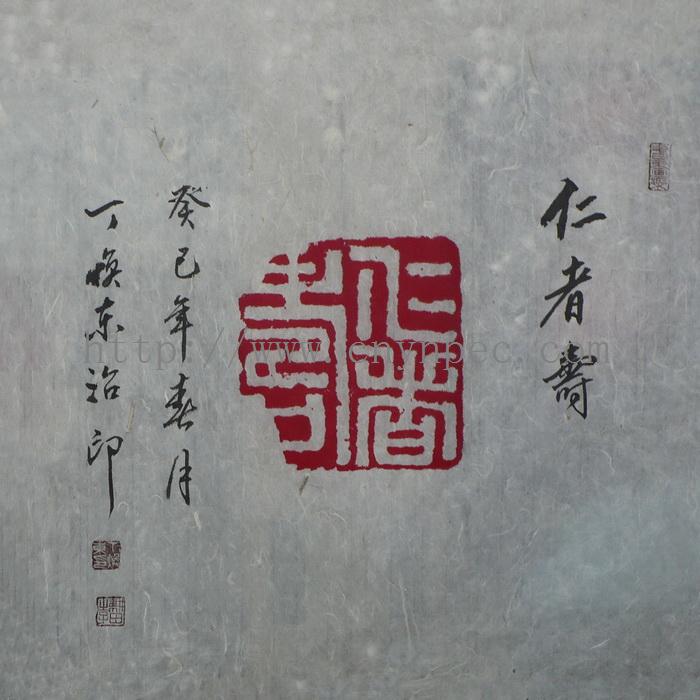 仁者壽
仁者壽
癸巳年春月
丁煥东治印
http://www.cnynpec.com